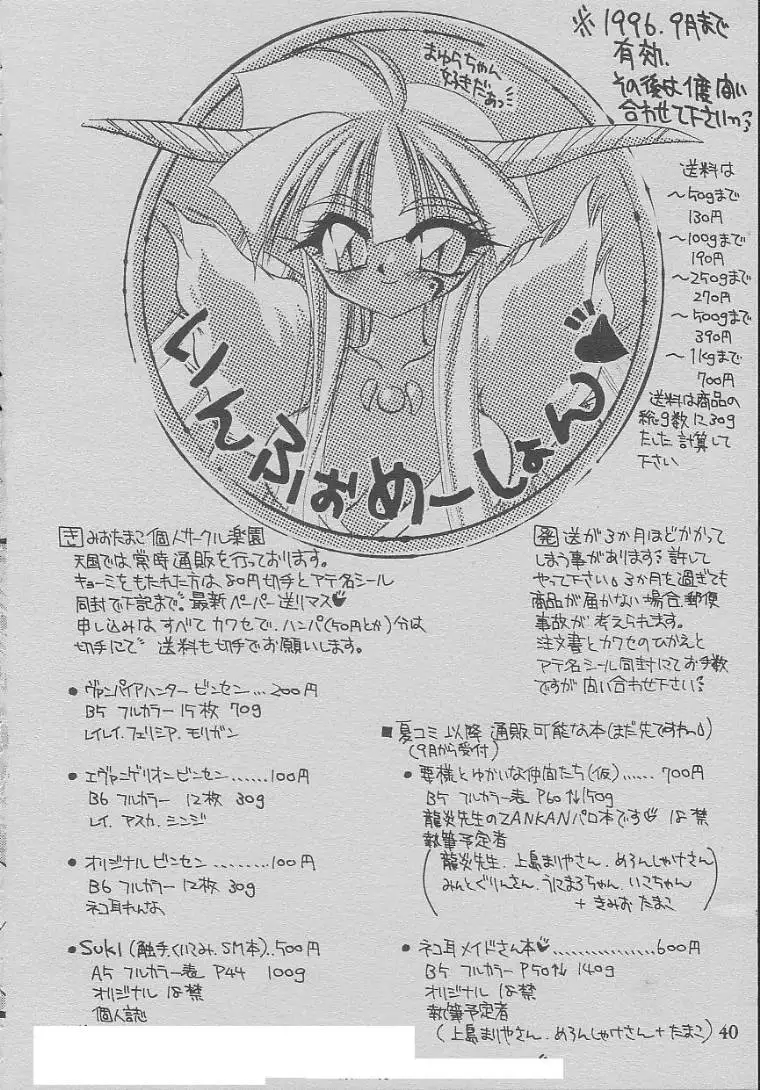 ※1996.9月まで
有効.
その後は1度問い
合わせて下さいっ
まゆらちゃん
好きだぁっ
送料は
〜50gまで
130円
〜100gまで
190円
〜250gまで
270円
〜500gまで
390円
〜1kgまで
700円
送料は商品の
総g数に30g
たした計算して
下さい
いんふぉめーしょん♥
きみおたまこ個人サークル楽園
天国では常時通販を行っております。
キョーミをもたれた方は、80円切手とアテ名シール
同封で下記まで。最新ペーパー送リマス♥
申し込みは、すべてカワセで、ハンパ(50円とか)分は
切手にて 送料も切手でお願いします。
発送が3か月ほどかかって
しまう事があります 許して
やって下さい 3か月を過ぎても
商品が届かない場合、郵便
事故が考えられます。
注文書とカワセのひかえと
アテ名シール同封にてお手数
ですが問い合わせ下さい
●ヴァンパイアハンタービンセン...200円
B5 フルカラー 15枚 70g
レイレイ.フェリシア.モリガン
●エヴァンゲリオンビンセン......100円
B6 フルカラー 12枚 30g
レイ.アスカ.シンジ
●オリジナルビンセン........100円
B6 フルカラー 12枚 30g
ネコ耳れんな
●Suki(触手、くいこみ、SM本)..500円
A5 フルカラー表 P44 100g
オリジナル 18禁
個人誌
■夏コミ以降 通販可能な本(まだ先ですねっ)
(9月から受付)
●要様とゆかいな仲間たち(仮)......700円
B5 フルカラー表 P60↑↓150g
龍炎先生のZANKANパロ本です♥ 18禁
執筆予定者
(龍炎先生.上島まりやさん.めろんしゃけさん
みんとぐりんさん.うにまろちゃん.いこちゃん
+きみお たまこ)
●ネコ耳メイドさん本♥................600円
B5 フルカラー P50↑↓ 140g
オリジナル 18禁
執筆予定者
(上島まりやさん.めろんしゃけさん+たまこ)
40